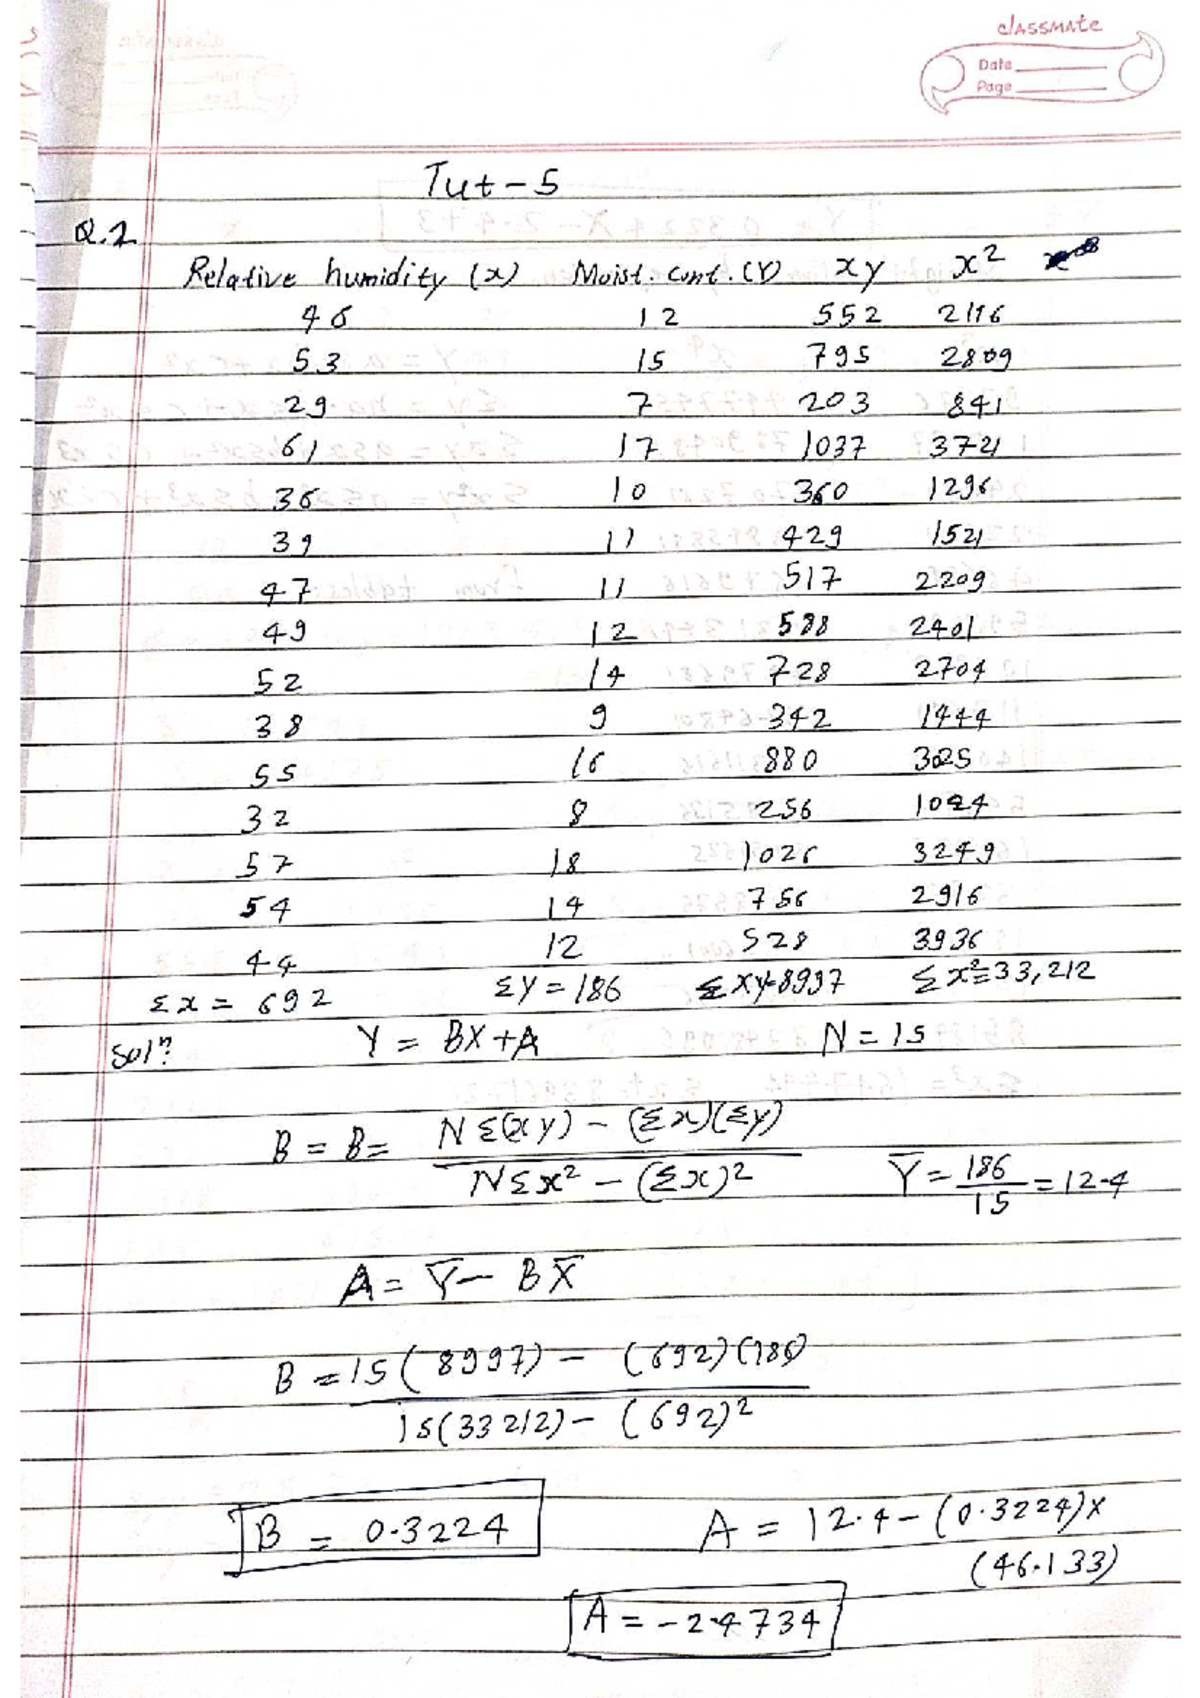 classmate
Date
Page
Tut-5
Q.2
Relative humidity (x) Moist. cont. (Y) xy x²
46 12 552 2116
53 15 795 2809
29 7 203 841
61 17 1037 3721
36 10 360 1296
39 11 429 1521
47 11 517 2209
49 12 588 2401
52 14 728 2704
38 9 342 1444
55 16 880 3025
32 8 256 1024
57 18 1026 3249
54 14 756 2916
44 12 528 3936
Σx = 692 ΣY = 186 ΣXY=8997 Σx²=33,212
Solⁿ: Y = BX+A N = 15
B = B = NΣ(xy) - (Σx)(Σy) / NΣx² - (Σx)² Ȳ = 186/15 = 12.4
A = Ȳ - BX̄
B = 15(8997) - (692)(186) / 15(33212) - (692)²
B = 0.3224 A = 12.4 - (0.3224)x
(46.133)
A = -2.4734